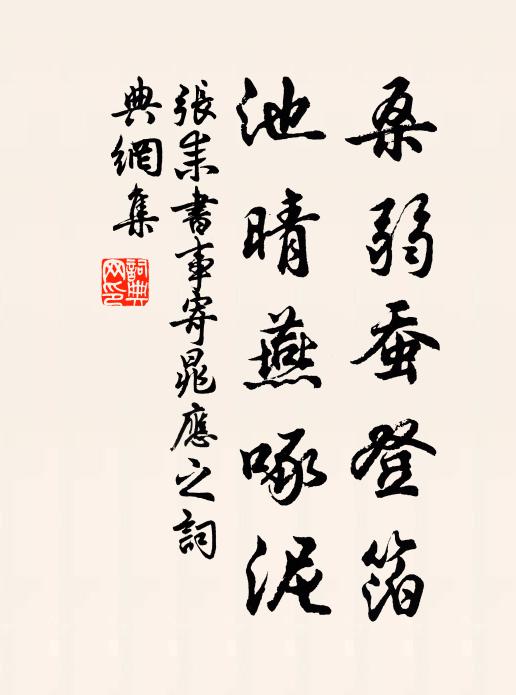 桑弱蚕登箔
池晴燕啄泥
張耒書事寄晁應之詞
典網集
詞典網印